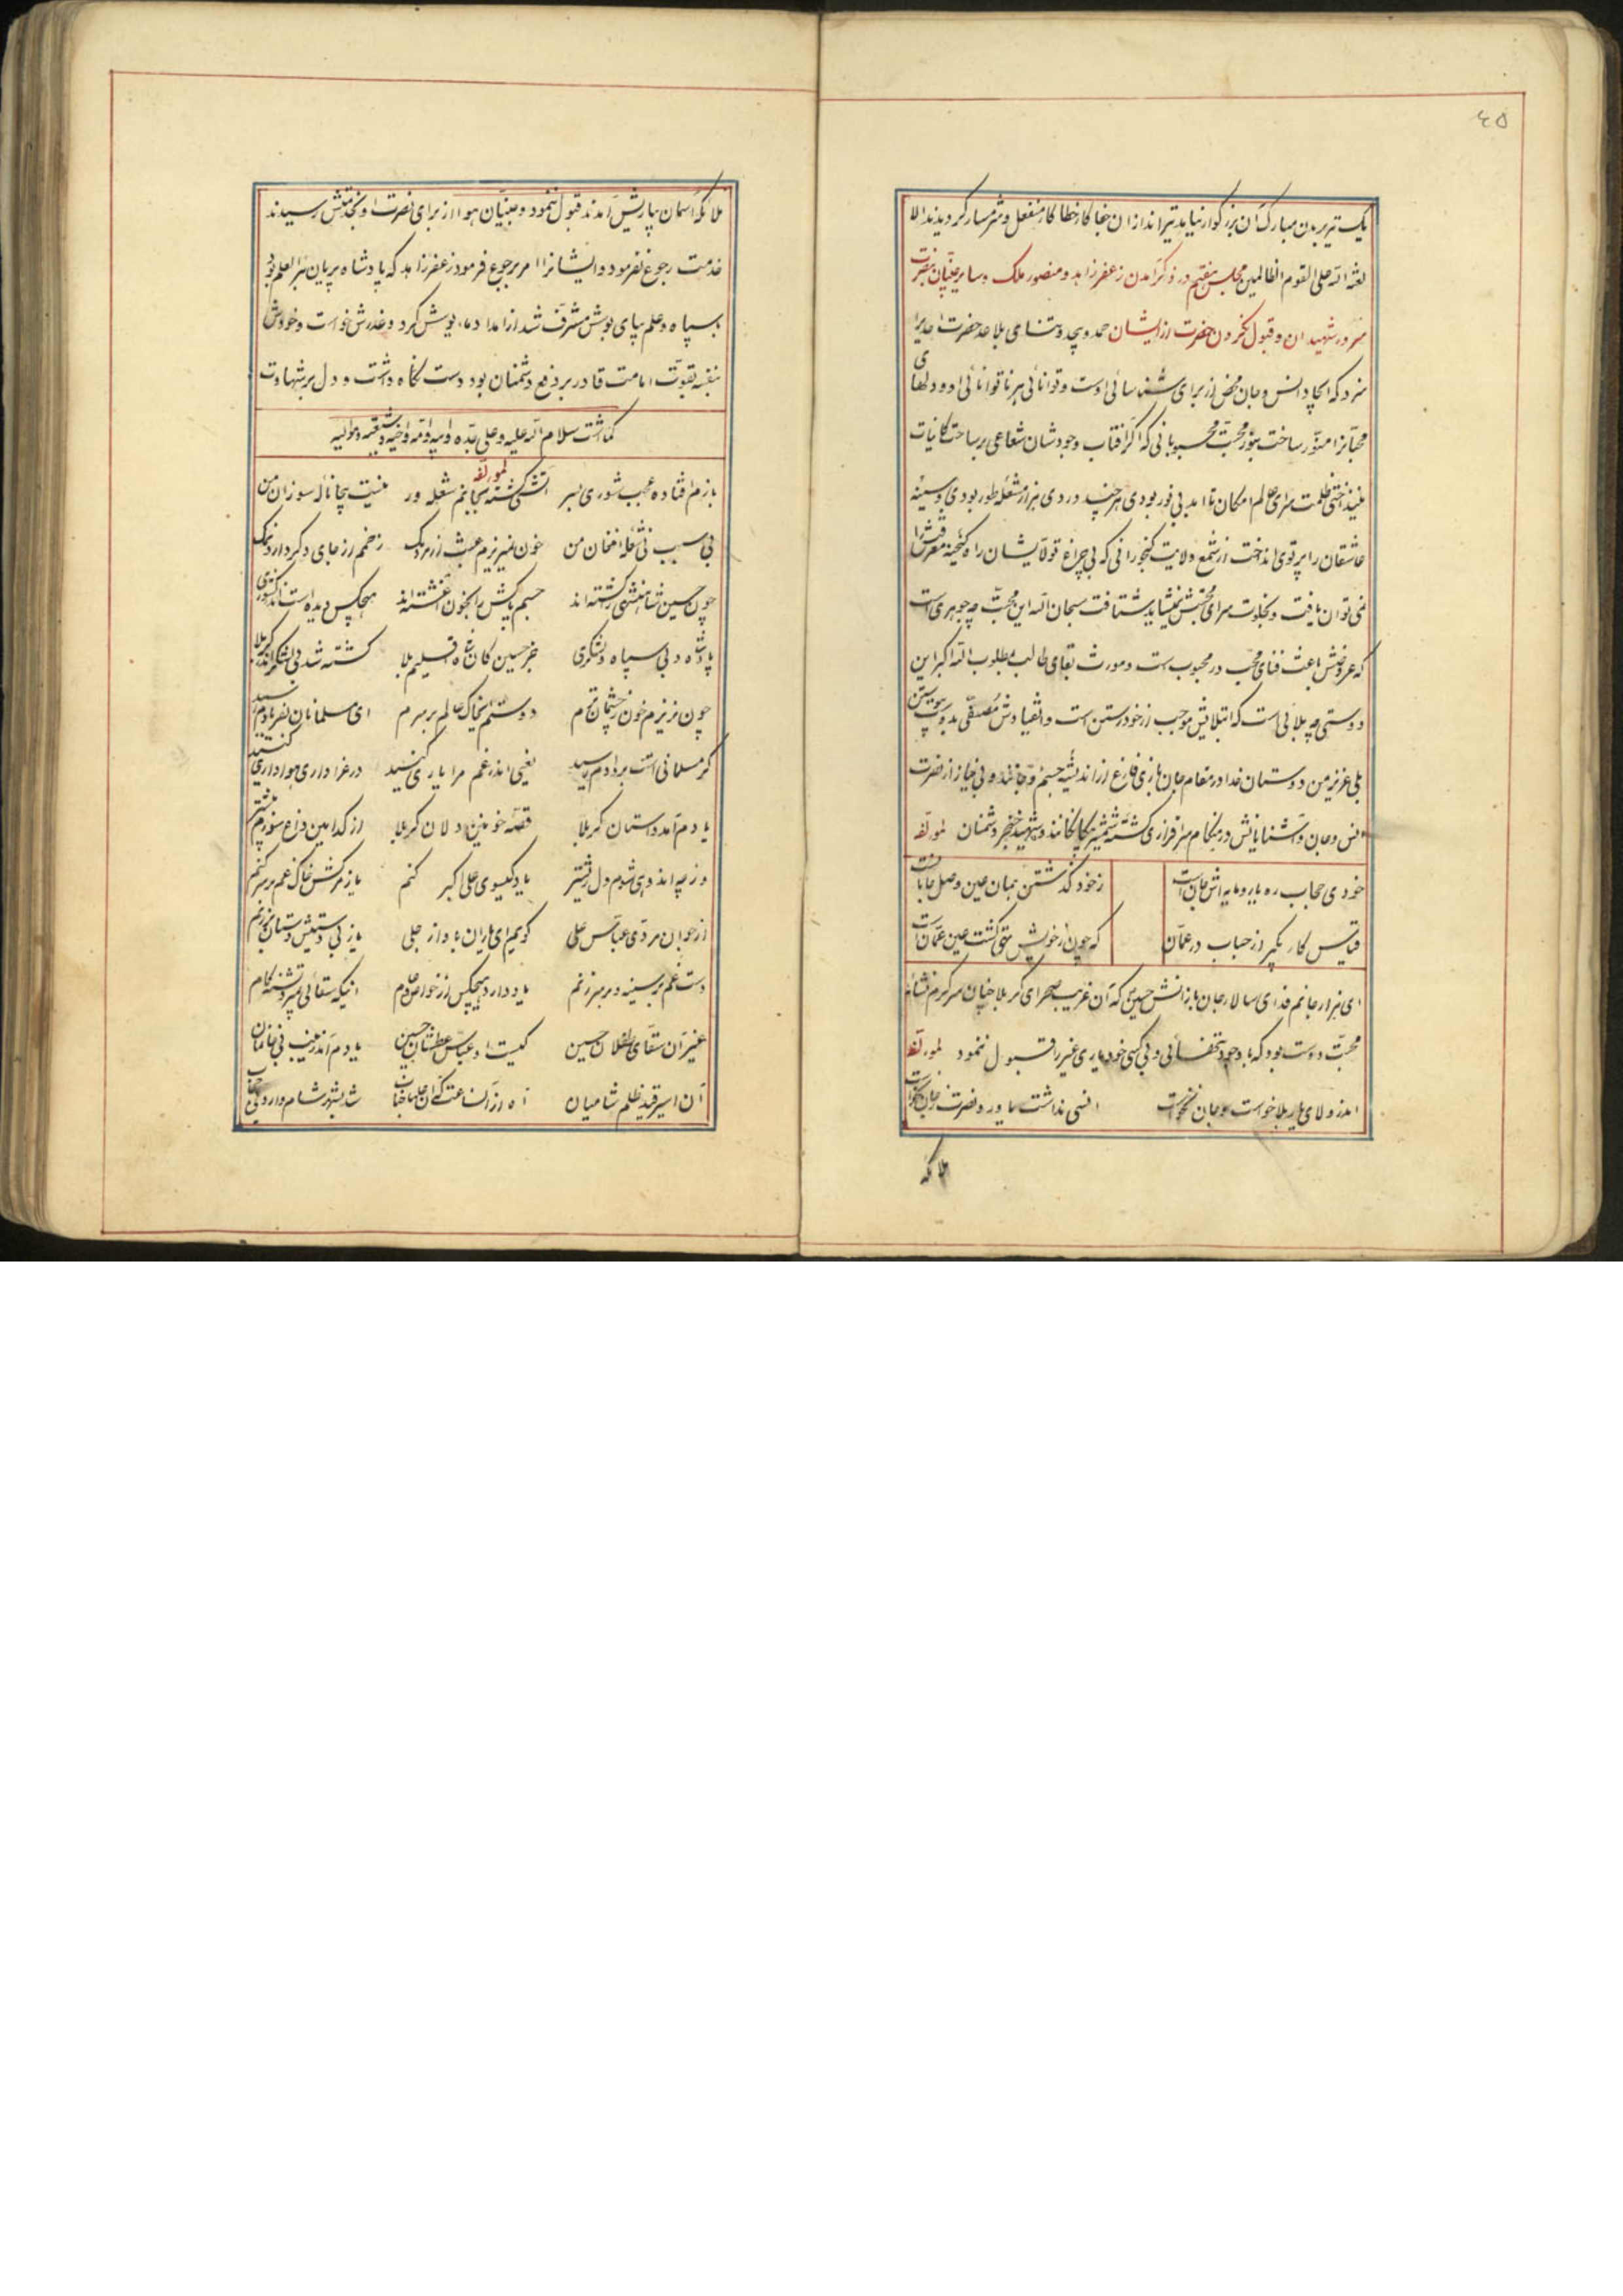 ٤٥
یک تیر بر بدن مبارک آن بزرگوار نیاید تیراندازان جفا کار خطا کار منفعل و شرمسار گردیدند الا
لعنة الله علی القوم الظالمین مجلس هفتم در ذکر آمدن زعفر زاهد و منصور ملک و سایر جنیان بنصرت
سرور شهیدان و قبول نکردن حضرت از ایشان حمد و بیحد و ثنای بلا عد حضرت احدیرا
سزد که ایجاد انس و جان محض از برای شناسائی اوست و توانائی هر ناتوانائی از او دلهای
محبانرا منور ساخت بنور محبت محبوبانی که اگر آفتاب وجودشان شعاعی بر ساحت کاینات
نینداختی ظلمت سرای عالم امکان تا ابد بی نور بودی هر چند در وی هزار مشعله طور بودی و سینه
عاشقان را پرتوی انداخت از شمع ولایت گنجورانی که بی چراغ تولای ایشان راه گنجینه معرفتش را
نمی توان یافت و بخلوت سرای محبتش نشاید شتافت سبحان الله این محبت چه جوهری است
که عروضش باعث فنای محب در محبوب است و مورث بقای طالب مطلوب الله اکبر این
دوستی چه بلائی است که ابتلایش موجب از خود رستن است و انقیادش مصدق بدوست پیوستن
بلی عزیز من دوستان خدا در مقام جان بازی فارغ از اندیشه جسم و جانند و بی نیاز از نصرت
انس و جان و آشنایانش در هنگام سرافرازی کشته شمشیر بیگانگانند و شهید خنجر دشمنان لمؤلفه
خودی حجاب ره یار و مایه اش جان است
ز خود گذشتن جهان عین وصل جانانست
قیاس کار بگیر از حباب در عمان
که چون ز خویش تهی گشت عین عمانست
ای هزار جانم فدای سالار جان بازانش حسین که آن غریب صحرای کربلا چنان سرگرم نشائه
محبت دوست بود که با وجود تنهائی و بی کسی خود یاری غیر را قبول ننمود لمؤلفه
اندر ولای یار بلا خواست و جان نخواست
انسی نداشت یاور و نصرت ز جان نخواست
ملائکه
ملائکه آسمان بیاریش آمدند قبول ننمود و جنیان هوا از برای نصرت او بخدمتش رسیدند
خدمت رجوع نفرمود و ایشانرا امر برجوع فرمود زعفر زاهد که پادشاه پریان بئر العلم بود
با سپاه و علم بپای بوسش مشرف شد از امداد مایوسش کرد و عذرش خواست و خودش
بنفسه بقوت امامت قادر بر دفع دشمنان بود دست نگاه داشت و دل بر شهادت
گماشت سلام الله علیه و علی جده و ابیه و امه و اخیه و شیعته و موالیه
لمؤلفه
بازم افتاده عجب شوری بسر
آتشی گشته بجانم شعله ور
نیست بیجا ناله سوزان من
بی سبب نی شعله افغان من
خون نمیریزم عبث از مردمک
زخمم از جای دگر دارد نمک
چون حسین شاهنشهی را کشته اند
جسم پاکش را بخون آغشته اند
هیچکس دیده است اندر کشوری
پادشاه و بی سپاه و لشکری
غیر حسین کان شاه اقلیم بلا
کشته شد بی لشکر اندر کربلا
چون نریزم خون ز چشمان ترم
دوستم ایخاک عالم بر سرم
ای مسلمانان بفریادم رسید
گر مسلمانی است بر دادم رسید
یعنی اندر غم مرا یاری کنید
در عزاداری هواداری کنید
یادم آمد داستان کربلا
قصه خونین دلان کربلا
از کدامین داغ سوزم بیشتر
وز چه اندوهی شوم دل ریشتر
یاد گیسوی علی اکبر کنم
باز بر سر خاک غم بر سر کنم
از جوان مردی عباس علی
گویم ای یاران با واز جلی
باز بی دستیش دستان بر زنم
دست غم بر سینه و بر سر زنم
یاد دارد هیچکس از خواص و عام
اینکه سقائی بمیرد تشنه کام
غیر آن سقای طفلان حسین
کیست او عباس عطشان حسین
یادم آمد زینب بی خانمان
آن اسیر قید ظلم شامیان
آه از آن ساعت که آن عالیجناب
شد بشهر شام وارد بی حجاب